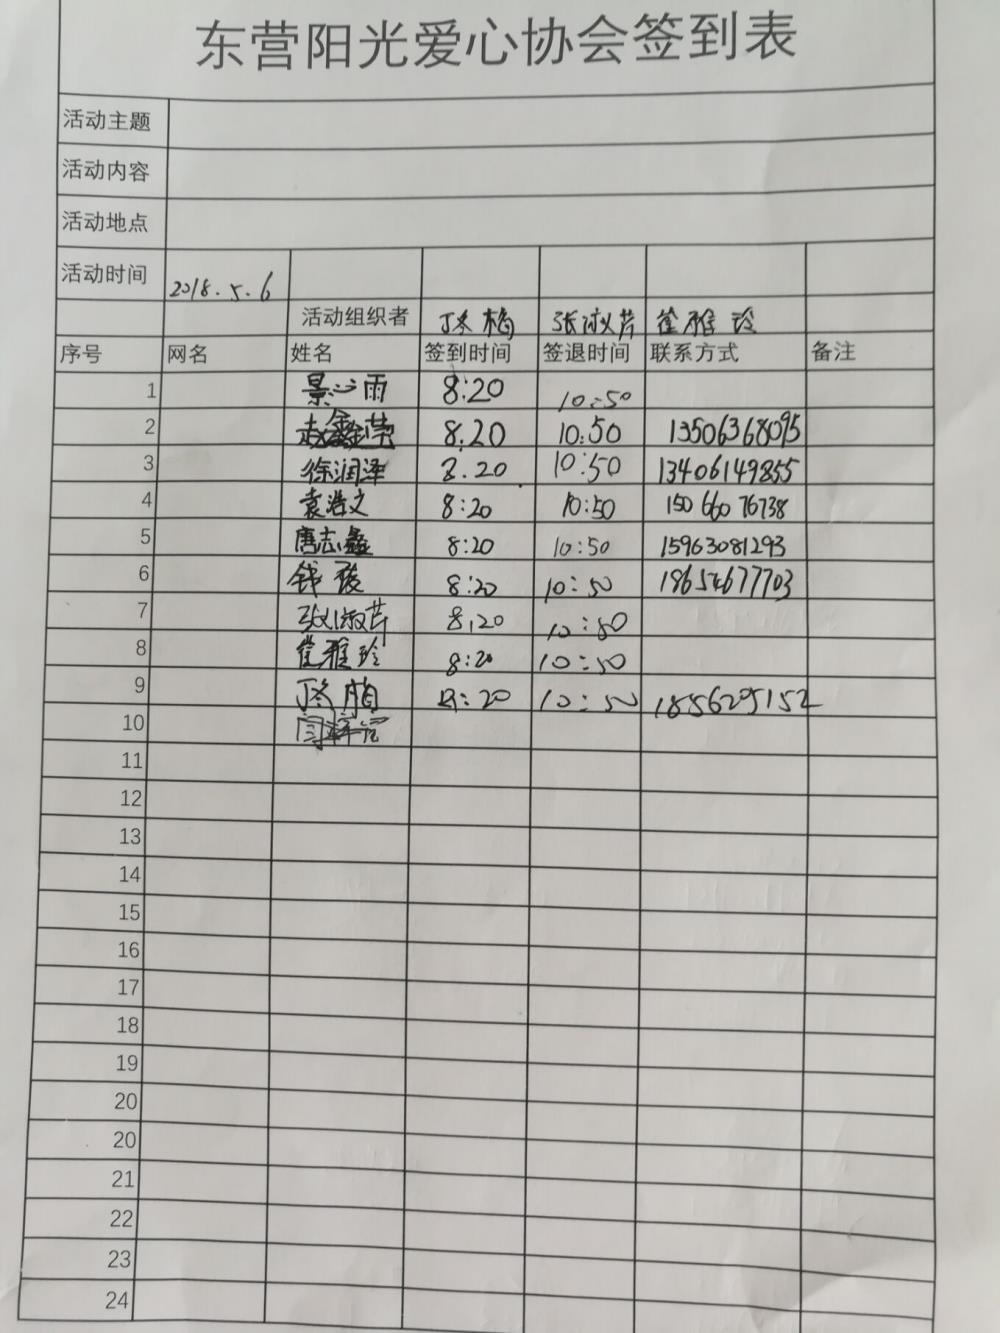 东营阳光爱心协会签到表
活动主题
活动内容
活动地点
活动时间 2018.5.6
活动组织者 张淑芹 崔雅玲
序号 网名 姓名 签到时间 签退时间 联系方式 备注
1 景心雨 8:20 10:50
2 8:20 10:50 13506368095
3 徐润泽 8:20 10:50 13406149855
4 袁浩文 8:20 10:50 15066076738
5 唐志鑫 8:20 10:50 15963081293
6 8:20 10:50 18654677703
7 张淑芹 8:20 10:50
8 崔雅玲 8:20 10:50
9 8:20 10:50 1856295152
10
11
12
13
14
15
16
17
18
19
20
20
21
22
23
24